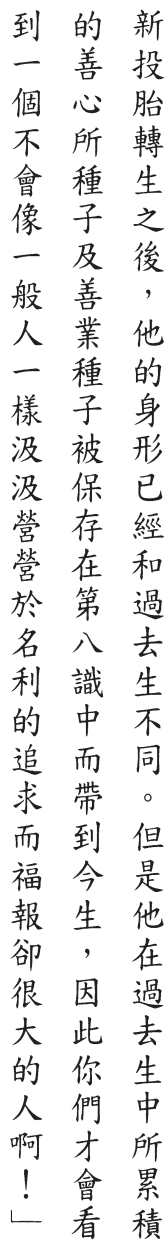 新投胎轉生之後，他的身形已經和過去生不同。但是他在過去生中所累積
的善心所種子及善業種子被保存在第八識中而帶到今生，因此你們才會看
到一個不會像一般人一樣汲汲營營於名利的追求而福報卻很大的人啊！」